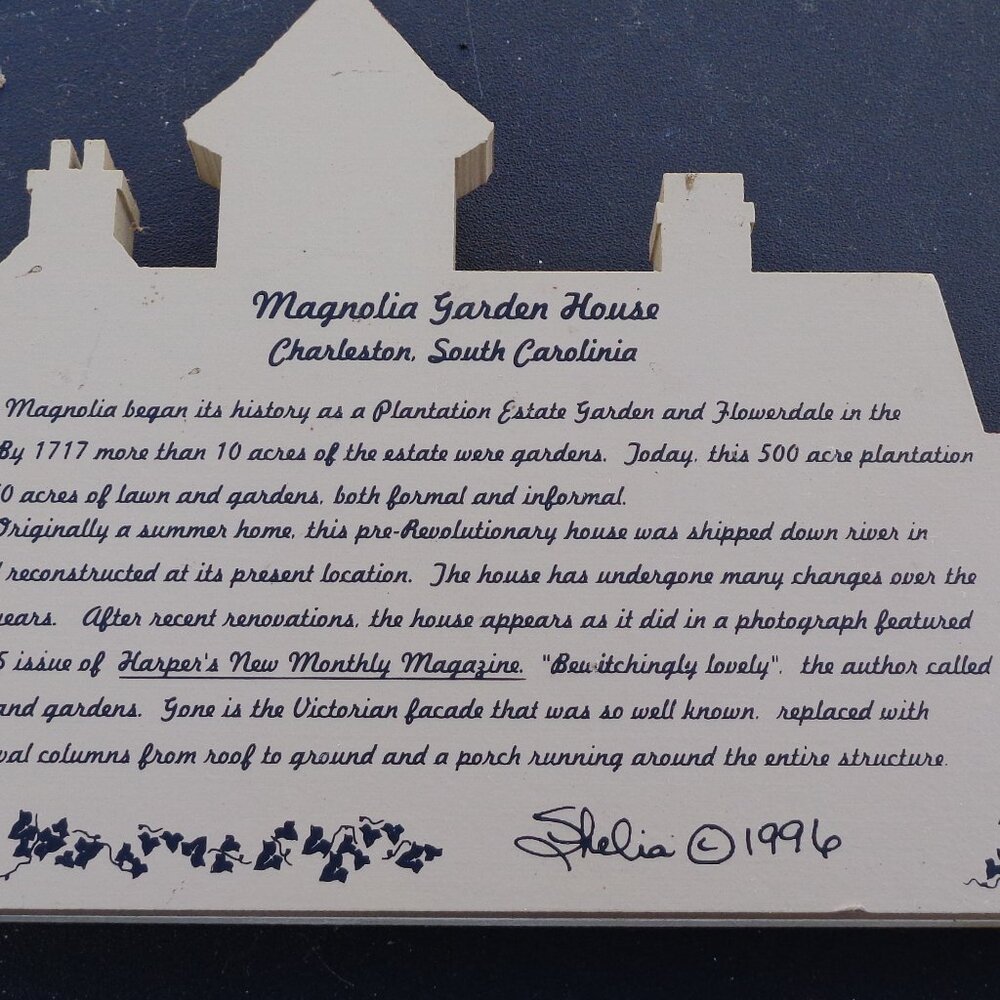 Magnolia Garden House
Charleston, South Carolinia
Magnolia began its history as a Plantation Estate Garden and Flowerdale in the
By 1717 more than 10 acres of the estate were gardens. Today, this 500 acre plantation
0 acres of lawn and gardens, both formal and informal.
Originally a summer home, this pre-Revolutionary house was shipped down river in
reconstructed at its present location. The house has undergone many changes over the
years. After recent renovations, the house appears as it did in a photograph featured
5 issue of Harper's New Monthly Magazine. "Bewitchingly lovely", the author called
and gardens. Gone is the Victorian facade that was so well known, replaced with
val columns from roof to ground and a porch running around the entire structure.
Shelia © 1996